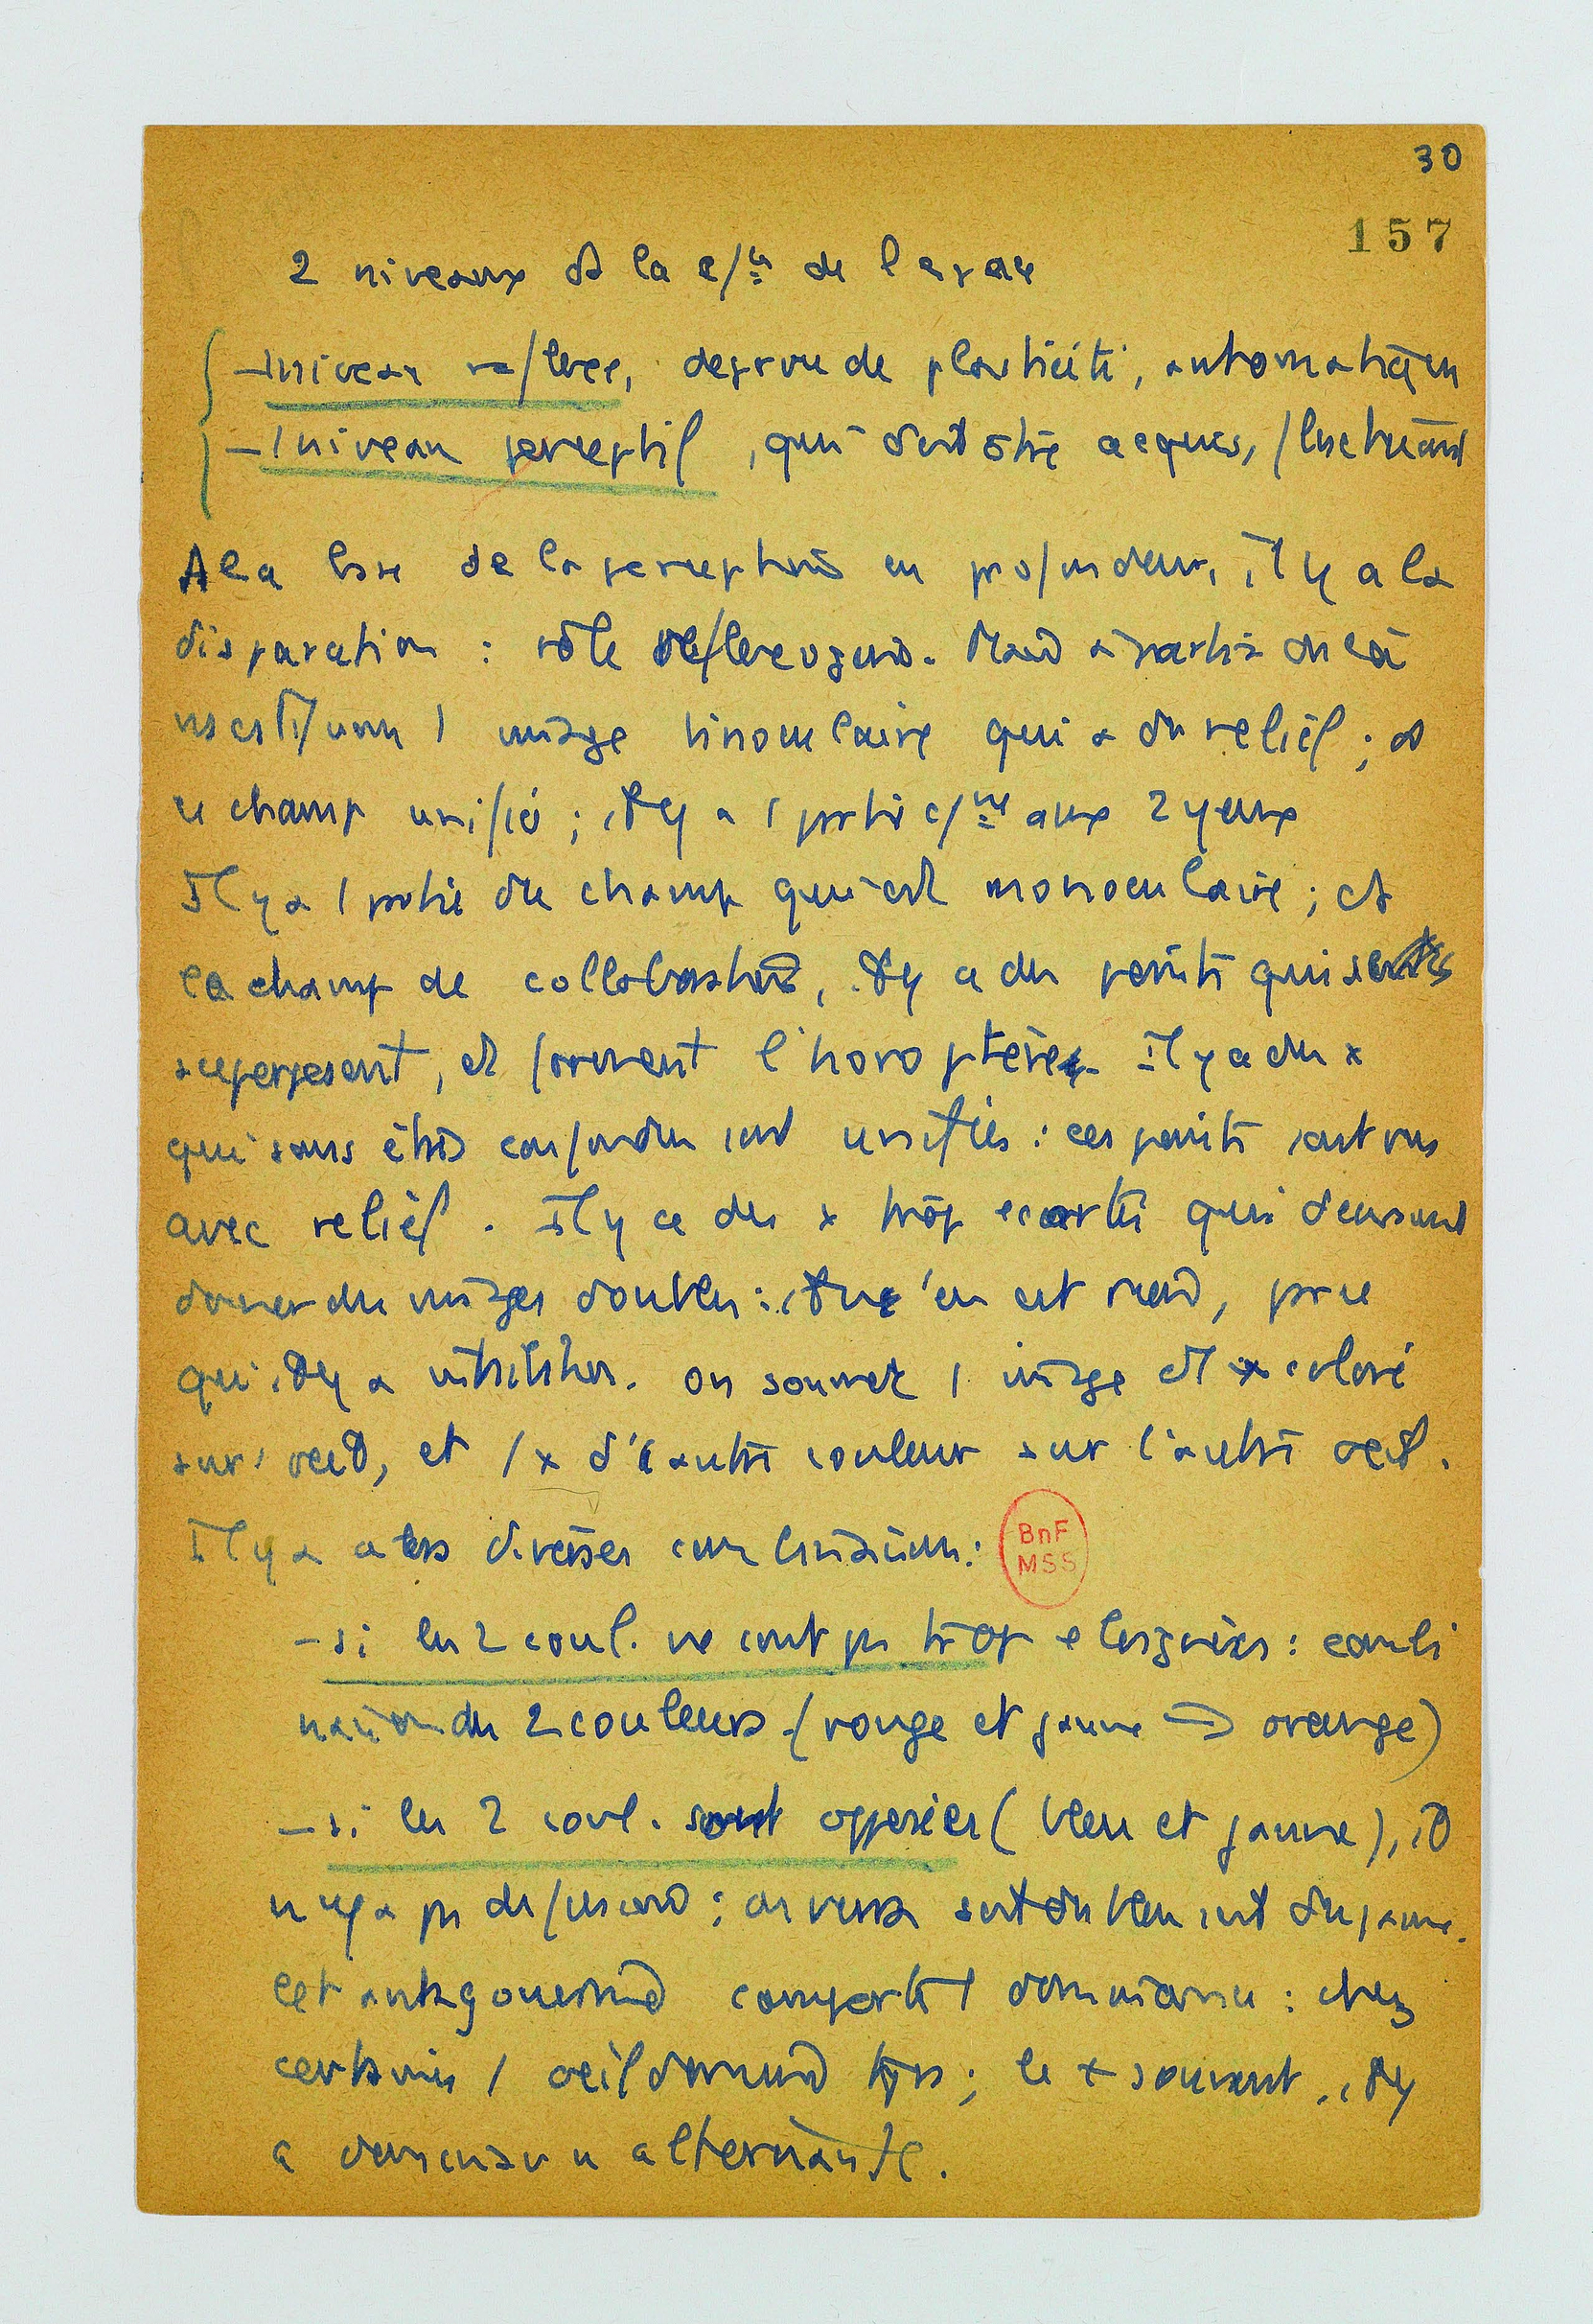 30
157
2 niveaux ds la c/ce de l'espace
- 1 niveau réflexe, dépourvu de plasticité, automatique
- 1 niveau perceptif, qui doit être acquis, fluctuant
A la base de la perception en profondeur, il y a la
disparation : rôle réflexogène. Mais à partir de là
se constitue 1 image binoculaire qui a du relief ; ds
ce champ unifié ; il y a 1 partie c/ne aux 2 yeux
Il y a 1 partie du champ qui est monoculaire ; et ds
le champ de collaboration, il y a des points qui se
superposent, et forment l'horoptère. Il y a des x
qui sans être confondus sont unifiés : ces points sont vus
avec relief. Il y a des x trop écartés qui devraient
donner des images doubles : il n'en est rien, parce
qu'il y a inhibition. On soumet 1 image et x coloré
sur 1 oeil, et 1 x d'1 autre couleur sur l'autre oeil.
Il y a alors diverses combinaisons :
BnF
MSS
- si les 2 coul. ne sont pas trop éloignées : combi
naison des 2 couleurs (rouge et jaune → orange)
- si les 2 coul. sont opposées (bleu et jaune), il
n'y a pas de fusion : on verra soit du bleu soit du jaune.
Cet antagonisme comporte 1 dominance : chez
certains 1 oeil domine tjrs ; le + souvent, il y
a dominance alternante.